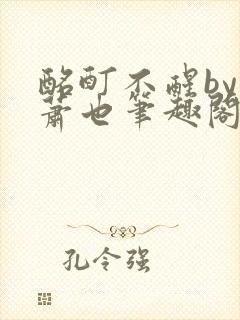 酩酊不醒by
萧也笔趣阁
孔令强